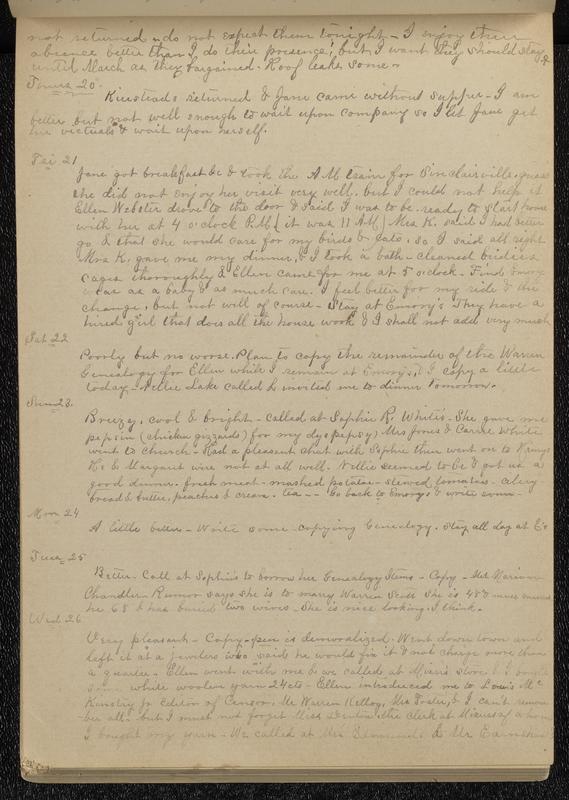 not returned & do not expect them tonight - I enjoy their
absence better than I do their presence, but I want they should stay
until March as they bargained. Roof leaks some.
Thurs 20.
Kinsteads returned & Jane came without supper - I am
better but not well enough to wait upon company so I let Jane get
her victuals & wait upon herself.
Fri 21
Jane got breakfast &c & took the A.M. train for Sinclairville, guess
she did not enjoy her visit very well. but I could not help it
Ellen Webster drove to the door & said I was to be ready to start home
with her at 4 o'clock P.M. (it was 11 A.M) Mrs K. said I had better
go & that she would care for my birds & cats. so I said all right
Mrs K. gave me my dinner, & I took a bath - cleaned birdies
cages thoroughly & Ellen came for me at 5 o'clock. Find Emory
as a baby & as much care. I feel better for my ride & the
change, but not well of course - Stay at Emory's They have a
hired girl that does all the house work & I shall not add very much
Sat 22
Poorly but no worse. Plan to copy the remainder of the Warren
Genealogy for Ellen while I remain at Emory's, & I copy a little
today - Nellie Lake called & invited me to dinner tomorrow.
Sun 23.
Breezy, cool & bright - called at Sophie R. White's - She gave me
pepsin (chicken gizzards) for my dyspepsy) Mrs Jones & Carrie White
went to church - Had a pleasant chat with Sophie then went on to
K's & Margaret were not at all well. Nellie seemed to be & got us a
good dinner. fresh meat - mashed potatoe - stewed tomatoes - celery -
bread & butter, peaches & cream. tea -- Go back to Emorys & write some -
Mon 24
A little better - Write some - copying Genealogy. Stay all day at E's
Tues 25
Better - Call at Sophie's to borrow her Genealogy Items - Copy - Met Marian
Chandler - Rumor says she is to marry Warren Scott She is 48 & never married
he 68 & has buried two wives - She is nice looking I think.
Wed 26
Very pleasant - Copy - pen is demoralized. Went down town and
left it at a jewelers who said he would fix it & not charge more than
a quarter - Ellen went with me & we called at store, & I bought
some white woolen yarn 24cts - Ellen introduced me to Louis Mc
Kinstry Jr Editor of Censor, Mr Warren Kellog, Mrs Foster, & I can't remem-
ber all - but I must not forget Miss the clerk at of whom
I bought my yarn - We called at Mrs & Mr